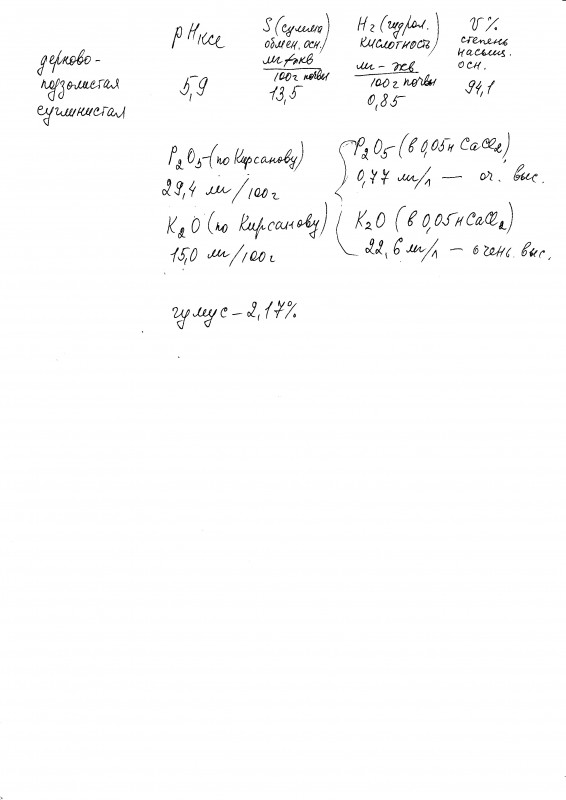 дерново-
подзолистая
суглинистая
pH KCl
5,9
S (сумма
обмен. осн.)
мг-экв
100г почвы
13,5
Hг (гидрол.
кислотность)
мг-экв
100г почвы
0,85
V%
степень
насыщ.
осн.
94,1
P₂O₅ (по Кирсанову)
29,4 мг/100г
K₂O (по Кирсанову)
15,0 мг/100г
P₂O₅ (в 0,05н CaCl₂)
0,77 мг/л — оч. выс.
K₂O (в 0,05н CaCl₂)
22,6 мг/л — очень выс.
гумус - 2,17%